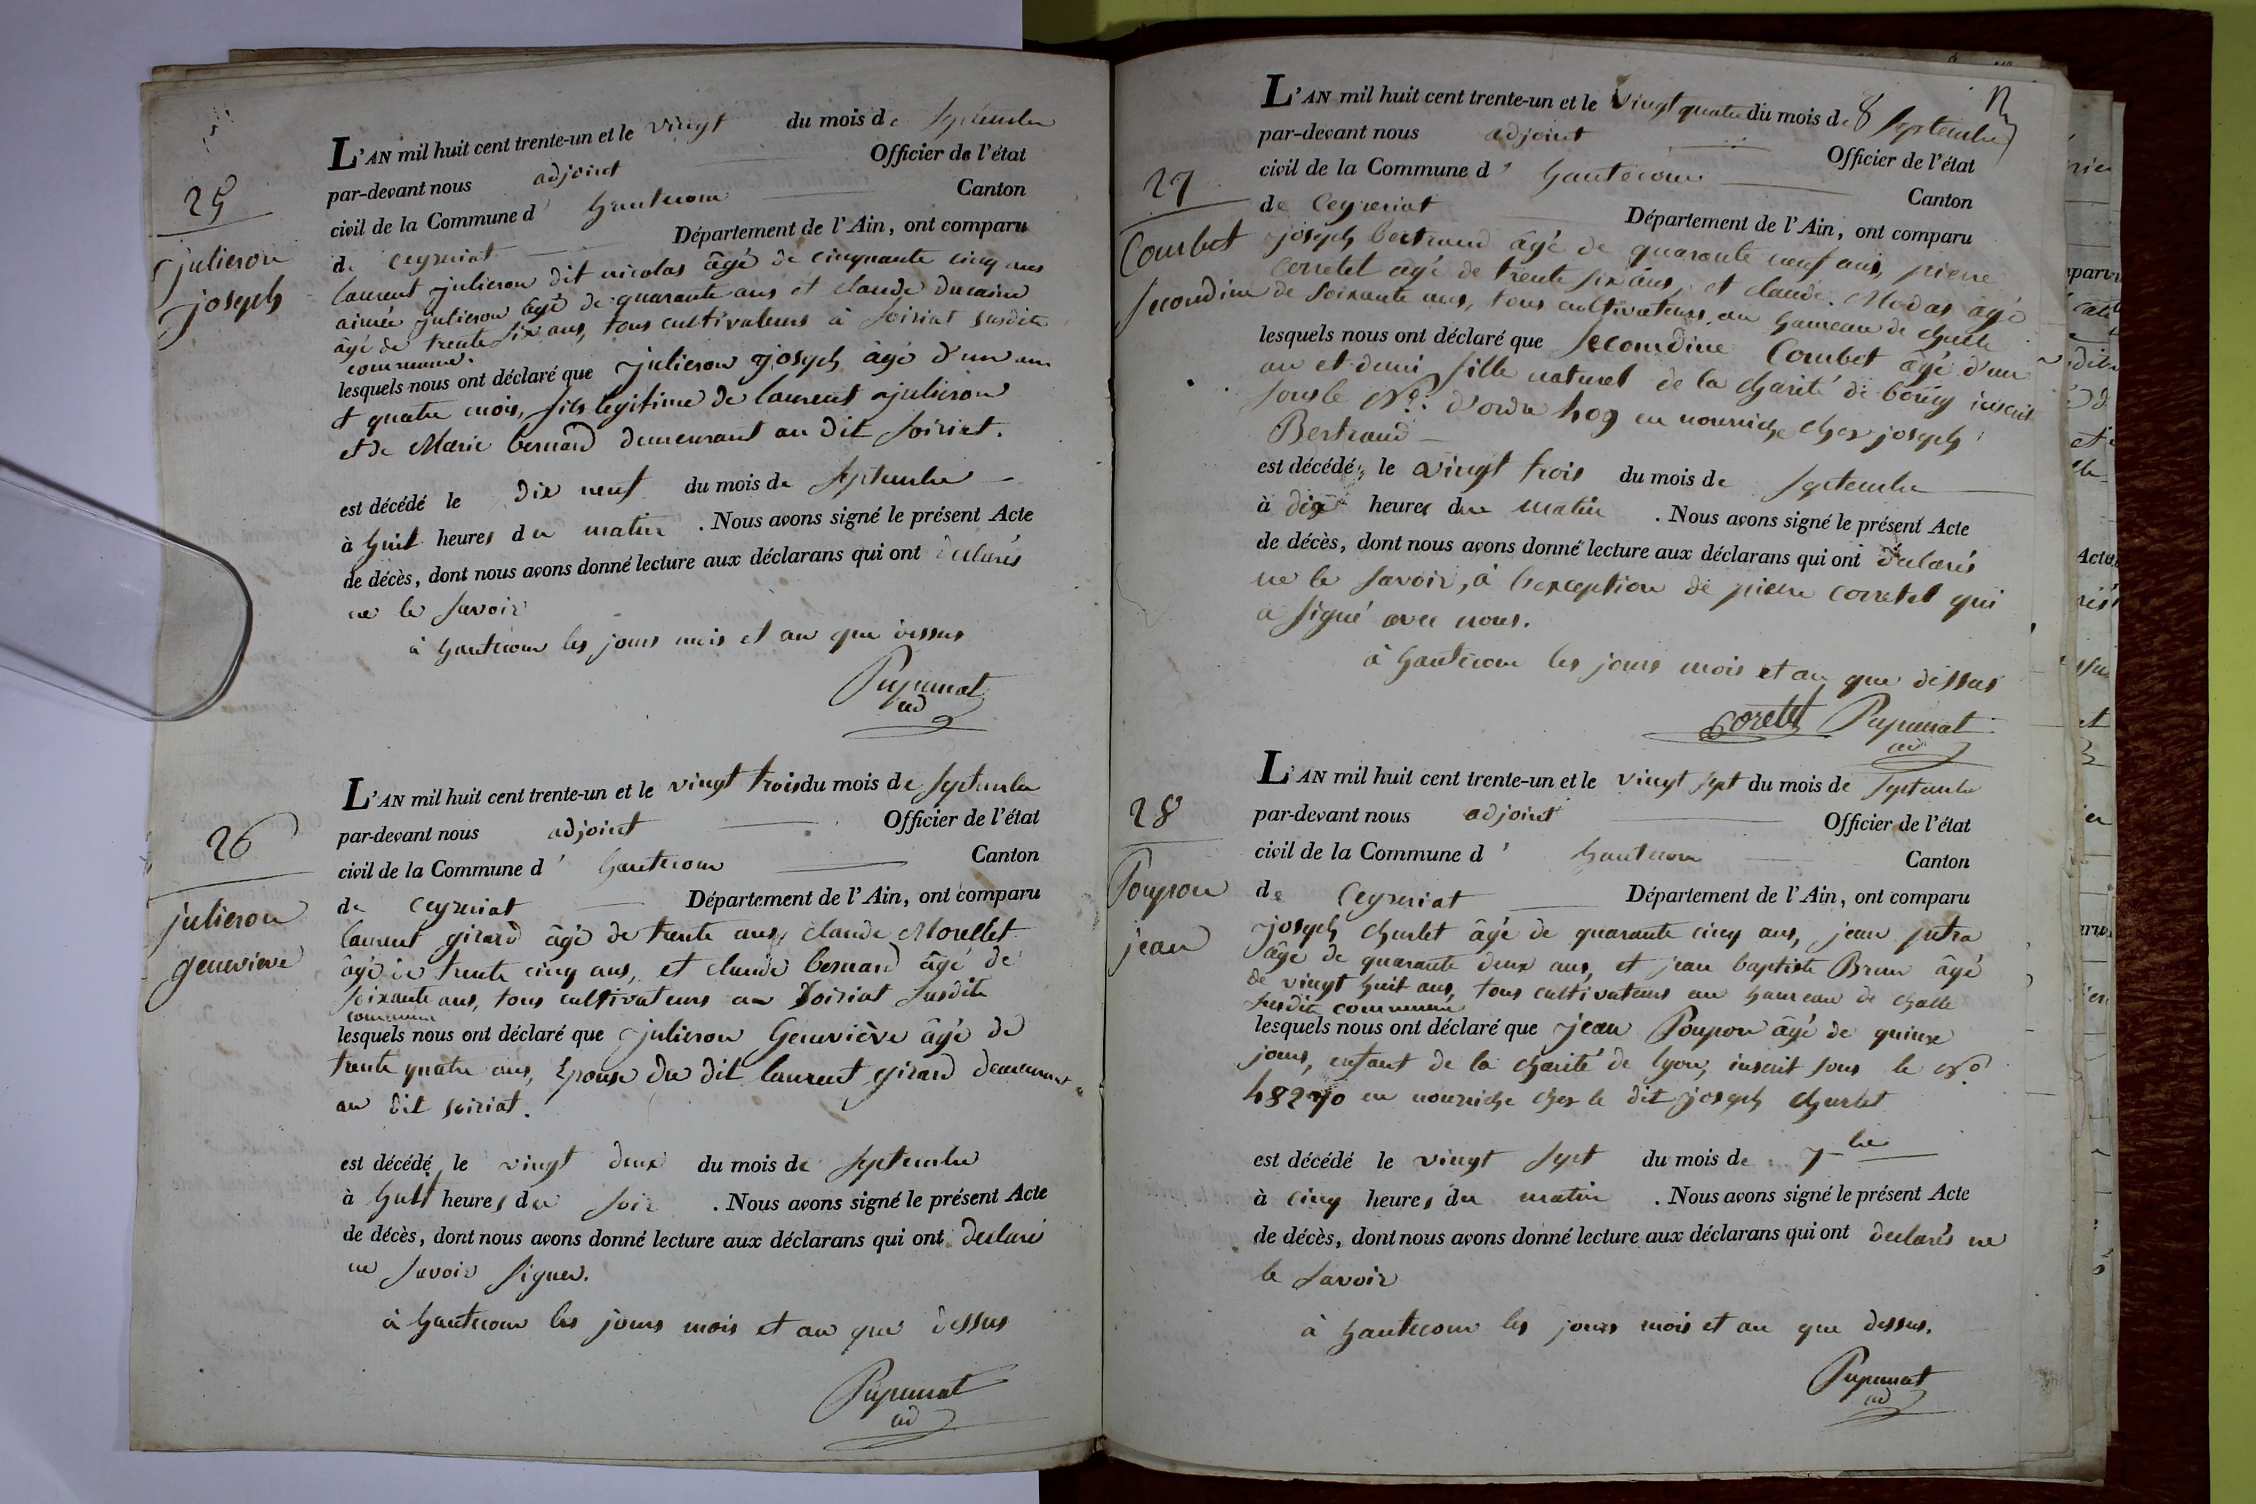 25
julieron
joseph
L'AN mil huit cent trente-un et le vingt du mois de septembre
par-devant nous adjoint Officier de l'état
civil de la Commune d' hautecour Canton
de ceyzeriat Département de l'Ain, ont comparu
laurent julieron dit nicolas âgé de cinquante cinq ans
aimée julieron âgé de quarante ans et claude
âgé de trente six ans, tous cultivateurs à soiriat susdite
commune.
lesquels nous ont déclaré que julieron joseph âgé d'un an
et quatre mois, fils legitime de laurent julieron
et de Marie bernard demeurant au dit soiriat.
est décédé le dix neuf du mois de septembre
à huit heures du matin . Nous avons signé le présent Acte
de décès, dont nous avons donné lecture aux déclarans qui ont declarés
ne le savoir
à hautecour les jours mois et an que dessus
Pupunat
ad
26
julieron
genevieve
L'AN mil huit cent trente-un et le vingt trois du mois de septembre
par-devant nous adjoint Officier de l'état
civil de la Commune d' hautecour Canton
de ceyzeriat Département de l'Ain, ont comparu
laurent girard âgé de trente ans, claude Morellet
âgé de trente cinq ans, et claude bernard âgé de
soixante ans, tous cultivateurs au soiriat susdite
commune
lesquels nous ont déclaré que julieron Geneviève âgé de
trente quatre ans, Epouse du dit laurent girard demeurant
au dit soiriat.
est décédé le vingt deux du mois de septembre
à huit heures du soir . Nous avons signé le présent Acte
de décès, dont nous avons donné lecture aux déclarans qui ont declaré
ne savoir signer.
à hautecour les jours mois et an que dessus
Pupunat
ad
27
Combet
secondine
L'AN mil huit cent trente-un et le vingt quatre du mois de septembre
par-devant nous adjoint Officier de l'état
civil de la Commune d' hautecour Canton
de Ceyzeriat Département de l'Ain, ont comparu
joseph bertrand âgé de quarante neuf ans, pierre
corretet âgé de trente six ans, et claude Modas âgé
de soixante ans, tous cultivateurs au hameau de
lesquels nous ont déclaré que secondine Combet âgé d'un
an et demi fille naturel de la charité de bourg inscrit
sous le No. d'ordre 409 en nourrice chez joseph
Bertrand
est décédé, le vingt trois du mois de septembre
à dix heures du matin . Nous avons signé le présent Acte
de décès, dont nous avons donné lecture aux déclarans qui ont déclarés
ne le savoir, à l'exception de pierre corretet qui
a signé avec nous.
à hautecour les jours mois et an que dessus
Coretet Pupunat
ad
28
Poupon
jean
L'AN mil huit cent trente-un et le vingt sept du mois de septembre
par-devant nous adjoint Officier de l'état
civil de la Commune d' hautecour Canton
de Ceyzeriat Département de l'Ain, ont comparu
joseph churlet âgé de quarante cinq ans, jean
âgé de quarante deux ans, et jean baptiste Brun âgé
de vingt huit ans, tous cultivateurs au hameau de challe
susdite commune
lesquels nous ont déclaré que jean Poupon âgé de quinze
jours, enfant de la charité de lyon, inscrit sous le No
48270 en nourrice chez le dit joseph churlet
est décédé le vingt sept du mois de 7bre
à cinq heures du matin . Nous avons signé le présent Acte
de décès, dont nous avons donné lecture aux déclarans qui ont declarés ne
le savoir
à hautecour les jours mois et an que dessus.
Pupunat
ad